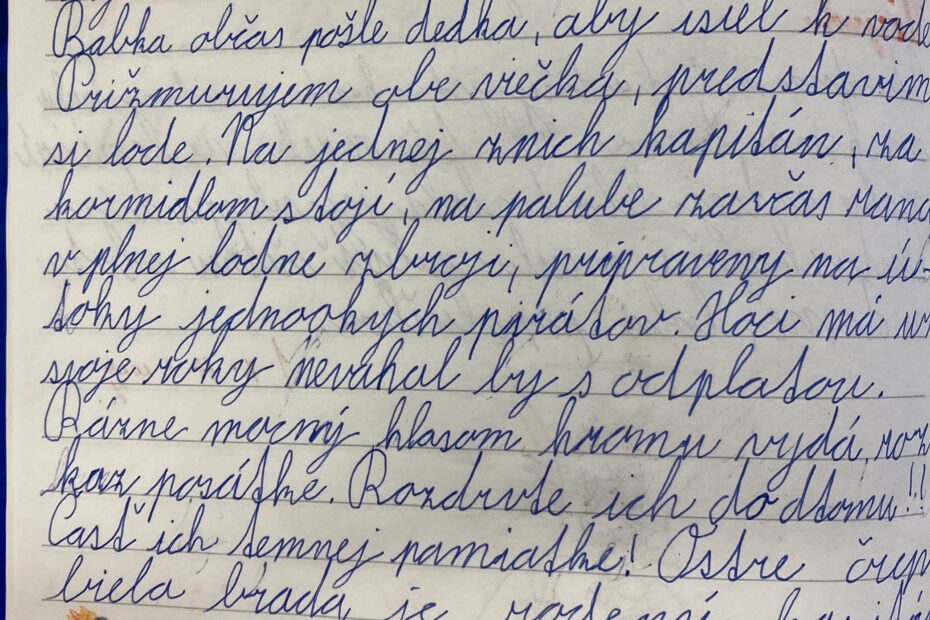 Babka občas pošle dedka, aby išiel k vode
Prižmurujem obe viečka, predstavim
si lode. Na jednej znich kapitán, za
kormidlom stojí, na palube zavčas rana
v plnej lodne zbroji, pripraveny na ú-
toky jednookých pirátov. Hoci má už
svoje roky neváhal by s odplatou.
Rázne mocný hlasom hromu vydá, roz
kaz posátke. Rozdrvte ich do dtomu!!
Časť ich temnej pamiatke! Ostre
biela brada je